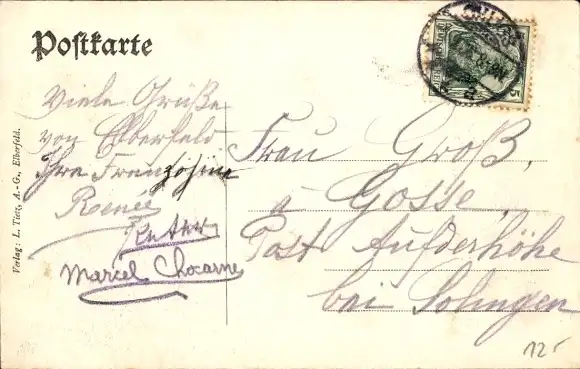 Postkarte
Viele Grüße
von Elberfeld
Ihre Franzöhine
Renée
Marcel Chocarne
Frau Groß,
Gosse,
Post Aufderhöhe
bei Solingen
Verlag: L. Tietz, A.-G., Elberfeld.
5
12.-